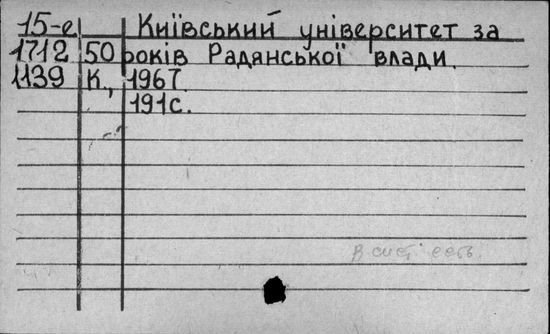 15-е Київський університет за
1712 50 років Радянської влади.
1139 К., 1967.
191с.